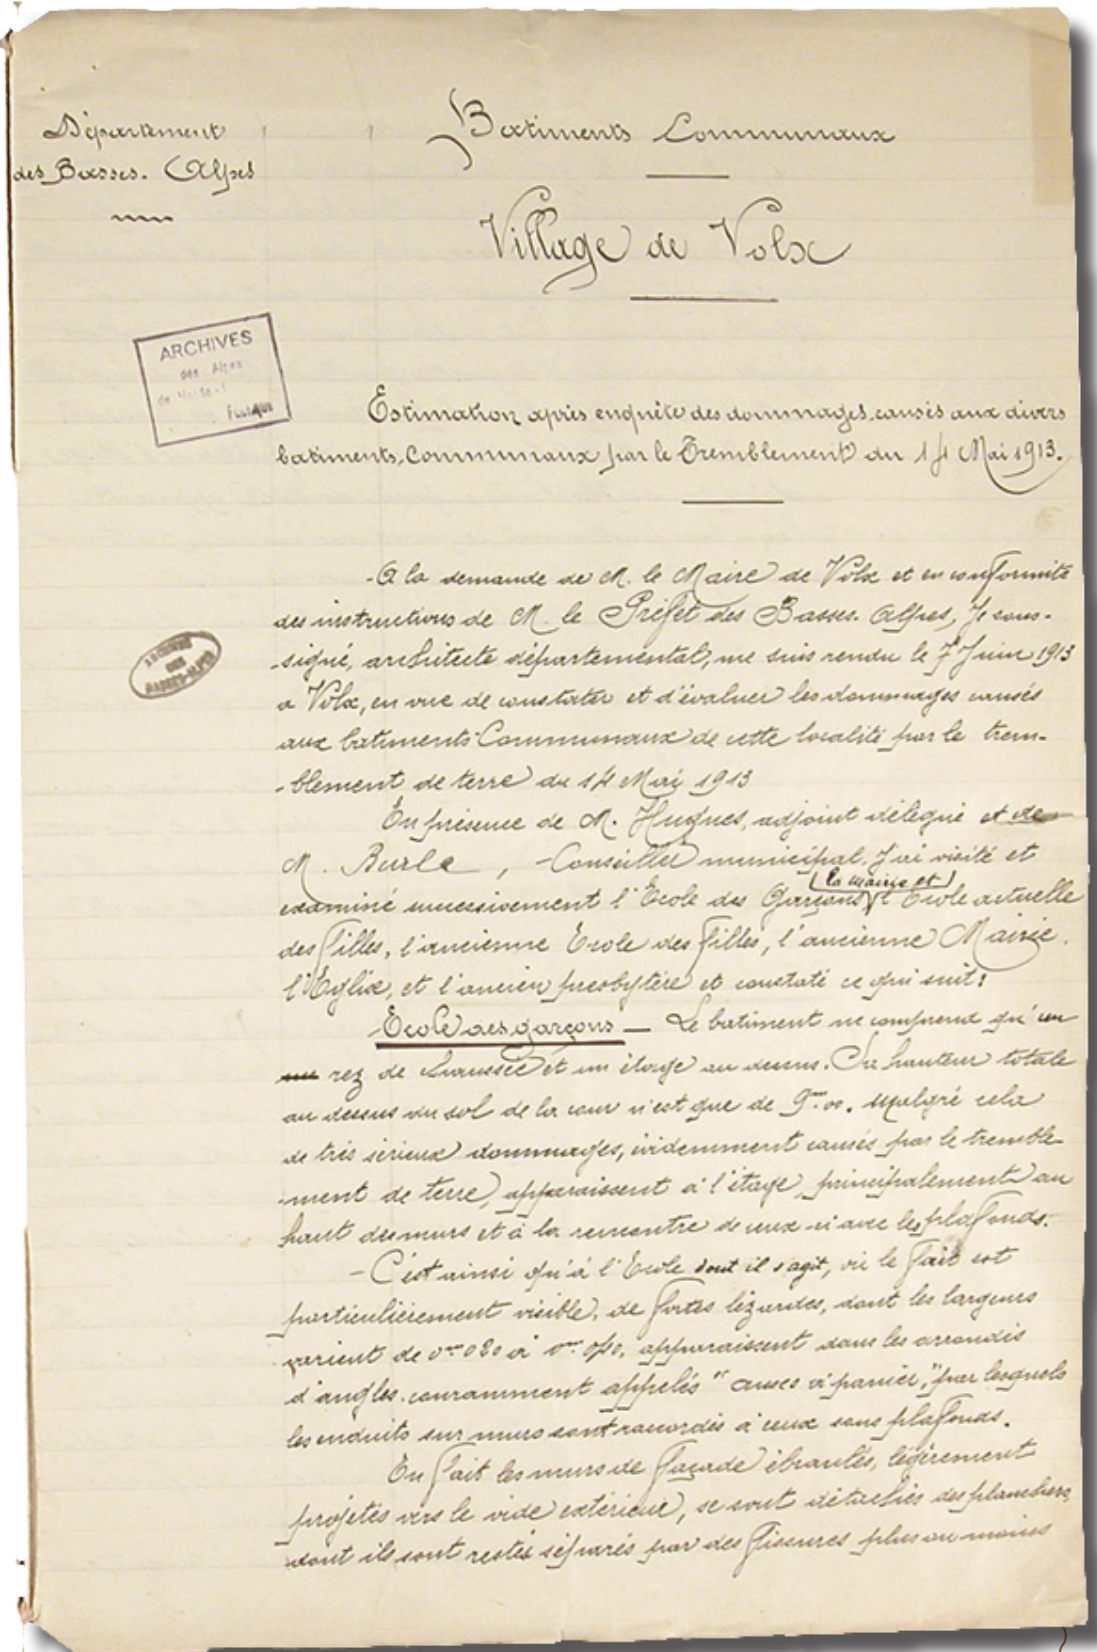 Département
des Basses-Alpes
Batiments Communaux
Village de Volx
ARCHIVES
des Alpes
de Haute-
Estimation après enquête des dommages causés aux divers
batiments Communaux par le Tremblement du 14 Mai 1913.
A la demande de M. le Maire de Volx et en conformité
des instructions de M. le Préfet des Basses-Alpes, Je sous-
-signé, architecte départemental, me suis rendu le 7 Juin 1913
a Volx, en vue de constater et d'évaluer les dommages causés
aux batiments Communaux de cette localité par le trem-
-blement de terre du 14 Mai 1913
En présence de M. Hugues, adjoint délégué et de
M. Burle, Conseiller municipal, J'ai visité et
la mairie et
examiné successivement l'Ecole des Garçons, l'Ecole actuelle
des filles, l'ancienne Ecole des filles, l'ancienne Mairie,
l'Eglise, et l'ancien presbytère et constaté ce qui suit:
Ecole des garçons — Le batiment ne comprend qu'un
un rez de chaussée et un étage au dessus. Sa hauteur totale
au dessus du sol de la cour n'est que de 9m00. Malgré cela
de très sérieux dommages, évidemment causés par le tremble-
-ment de terre, apparaissent à l'étage, principalement au
haut des murs et à la rencontre de ceux-ci avec les plafonds.
- C'est ainsi qu'à l'Ecole dont il s'agit, où le fait est
particulièrement visible, de fortes lézardes, dont les largeurs
varient de 0m 020 à 0m 040, apparaissent dans les arrondis
d'angles couramment appelés "anses à panier," par lesquels
les enduits sur murs sont raccordés à ceux sous plafonds.
En fait les murs de façade ébranlés, légèrement
projetés vers le vide extérieur, se sont détachés des planchers,
dont ils sont restés séparés par des fissures plus ou moins